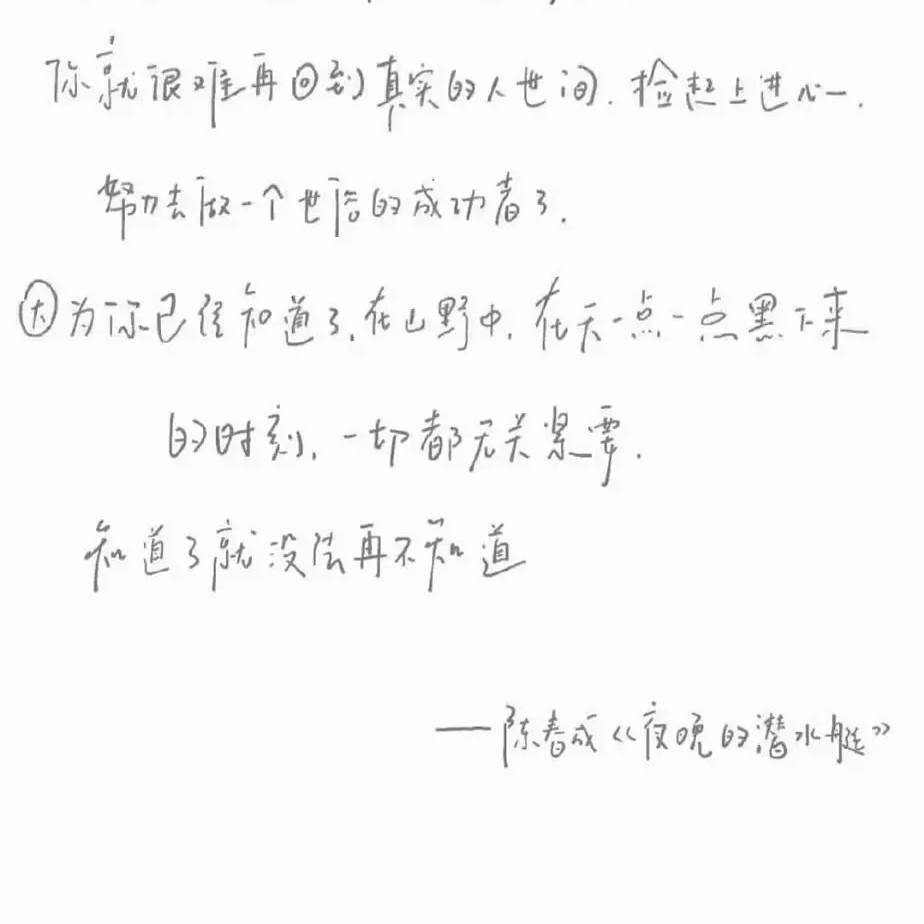 你就很难再回到真实的人世间.捡起上进心.
努力去做一个世俗的成功者了.
因为你已经知道了,在山野中,在天一点一点黑下来
的时刻,一切都无关紧要.
知道了就没法再不知道
——陈春成《夜晚的潜水艇》